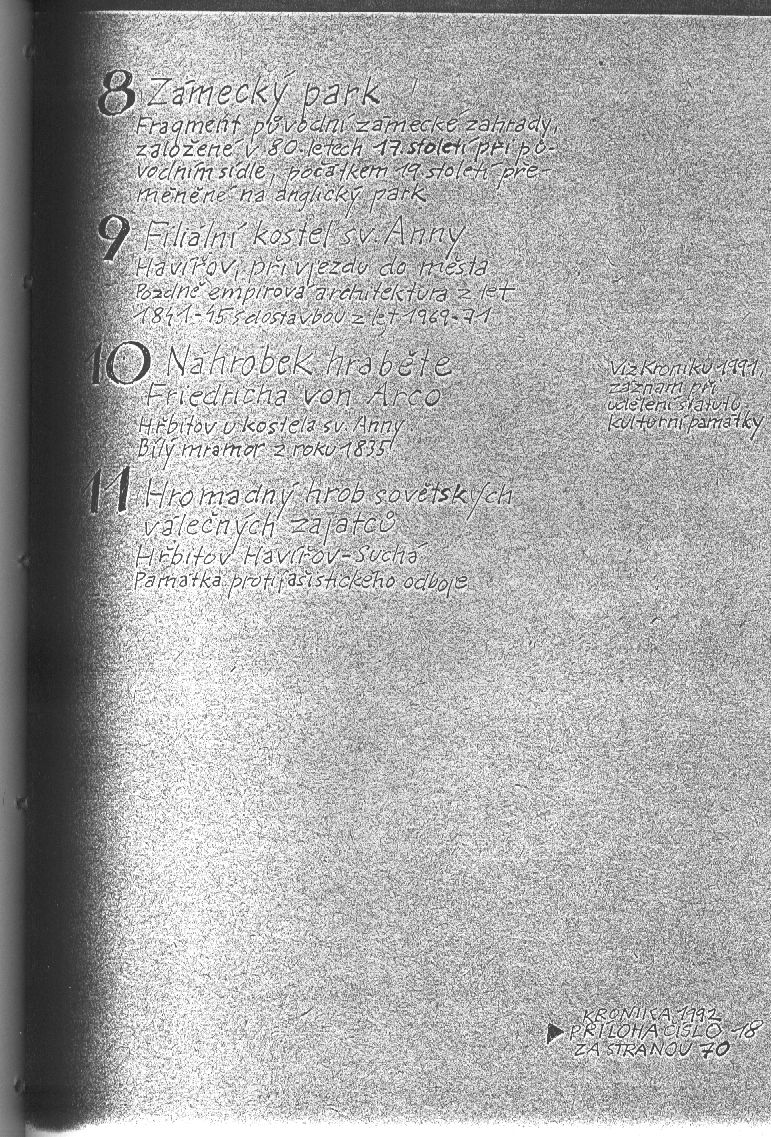 8 Zámecký park
Fragment původní zámecké zahrady,
založené v 80. letech 17 století při pů-
vodním sídle, počátkem 19 století pře-
měněné na anglický park
9 Filiální kostel sv. Anny
Havířov, při vjezdu do města
Pozdně empírová architektura z let
1841-45 s dostavbou z let 1969-71
10 Náhrobek hraběte
Friedricha von Arco
Hřbitov u kostela sv. Anny
Bílý mramor z roku 1835
Viz Kroniku 1991,
záznam při
udělení statutu
kulturní památky
11 Hromadný hrob sovětských
válečných zajatců
Hřbitov Havířov-Suchá
Památka protifašistického odboje
KRONIKA 1992
▶ PŘÍLOHA ČÍSLO 18
ZA STRANOU 70